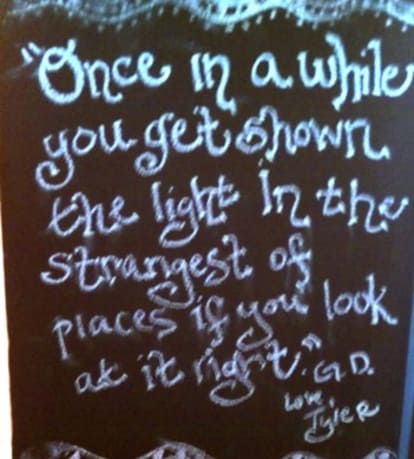 "Once in a while
you get shown
the light in the
strangest of
places if you look
at it right." G.D.
Love,
Tyler